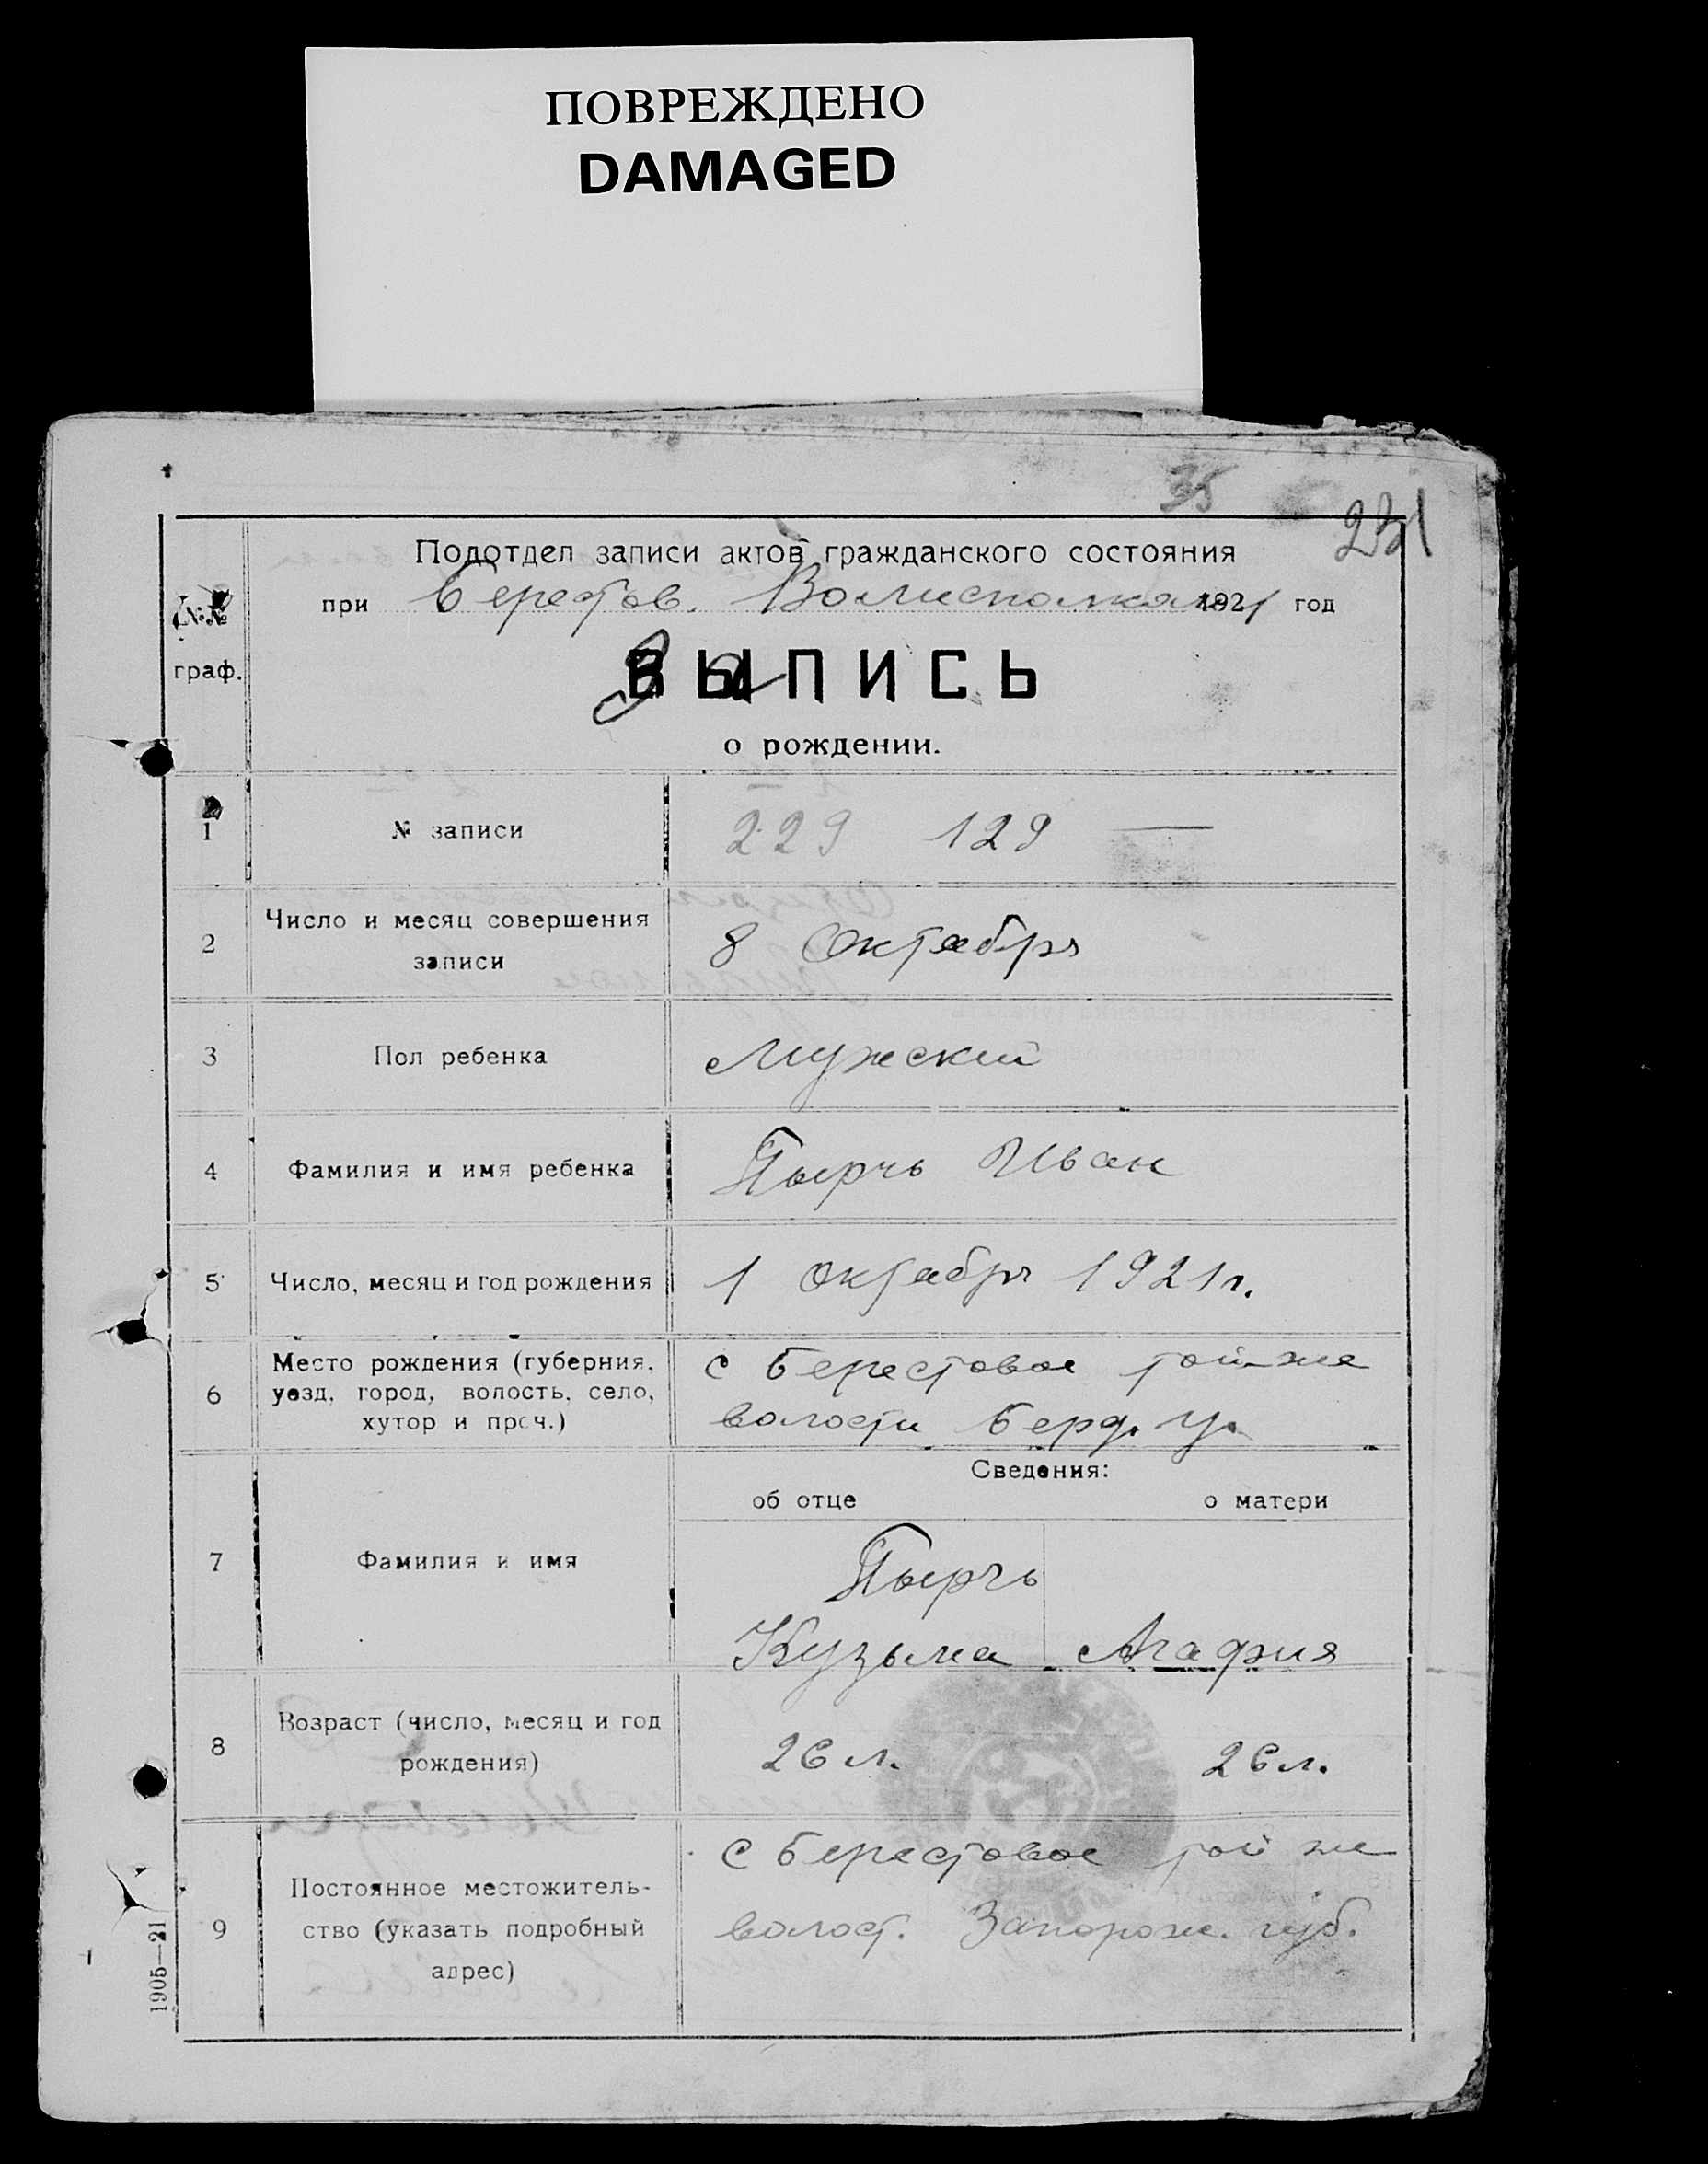 ПОВРЕЖДЕНО
DAMAGED
35
231
Подотдел записи актов гражданского состояния
при Берестов. Волисполкома 1921 год
№№
граф.
ВЫПИСЬ
о рождении.
1 № записи 229 129 —
2 Число и месяц совершения
записи
8 Октября
3 Пол ребенка Мужский
4 Фамилия и имя ребенка Пырчь Иван
5 Число, месяц и год рождения 1 октября 1921 г.
6 Место рождения (губерния,
уезд, город, волость, село,
хутор и проч.)
с Берестовое той-же
волости Берд. у.
Сведения:
об отце о матери
7 Фамилия и имя
Пырчь
Кузьма Агафия
8 Возраст (число, месяц и год
рождения)
26 л. 26 л.
9 Постоянное местожитель-
ство (указать подробный
адрес)
С Берестовое той же
волост. Запорож. губ.
1905—21